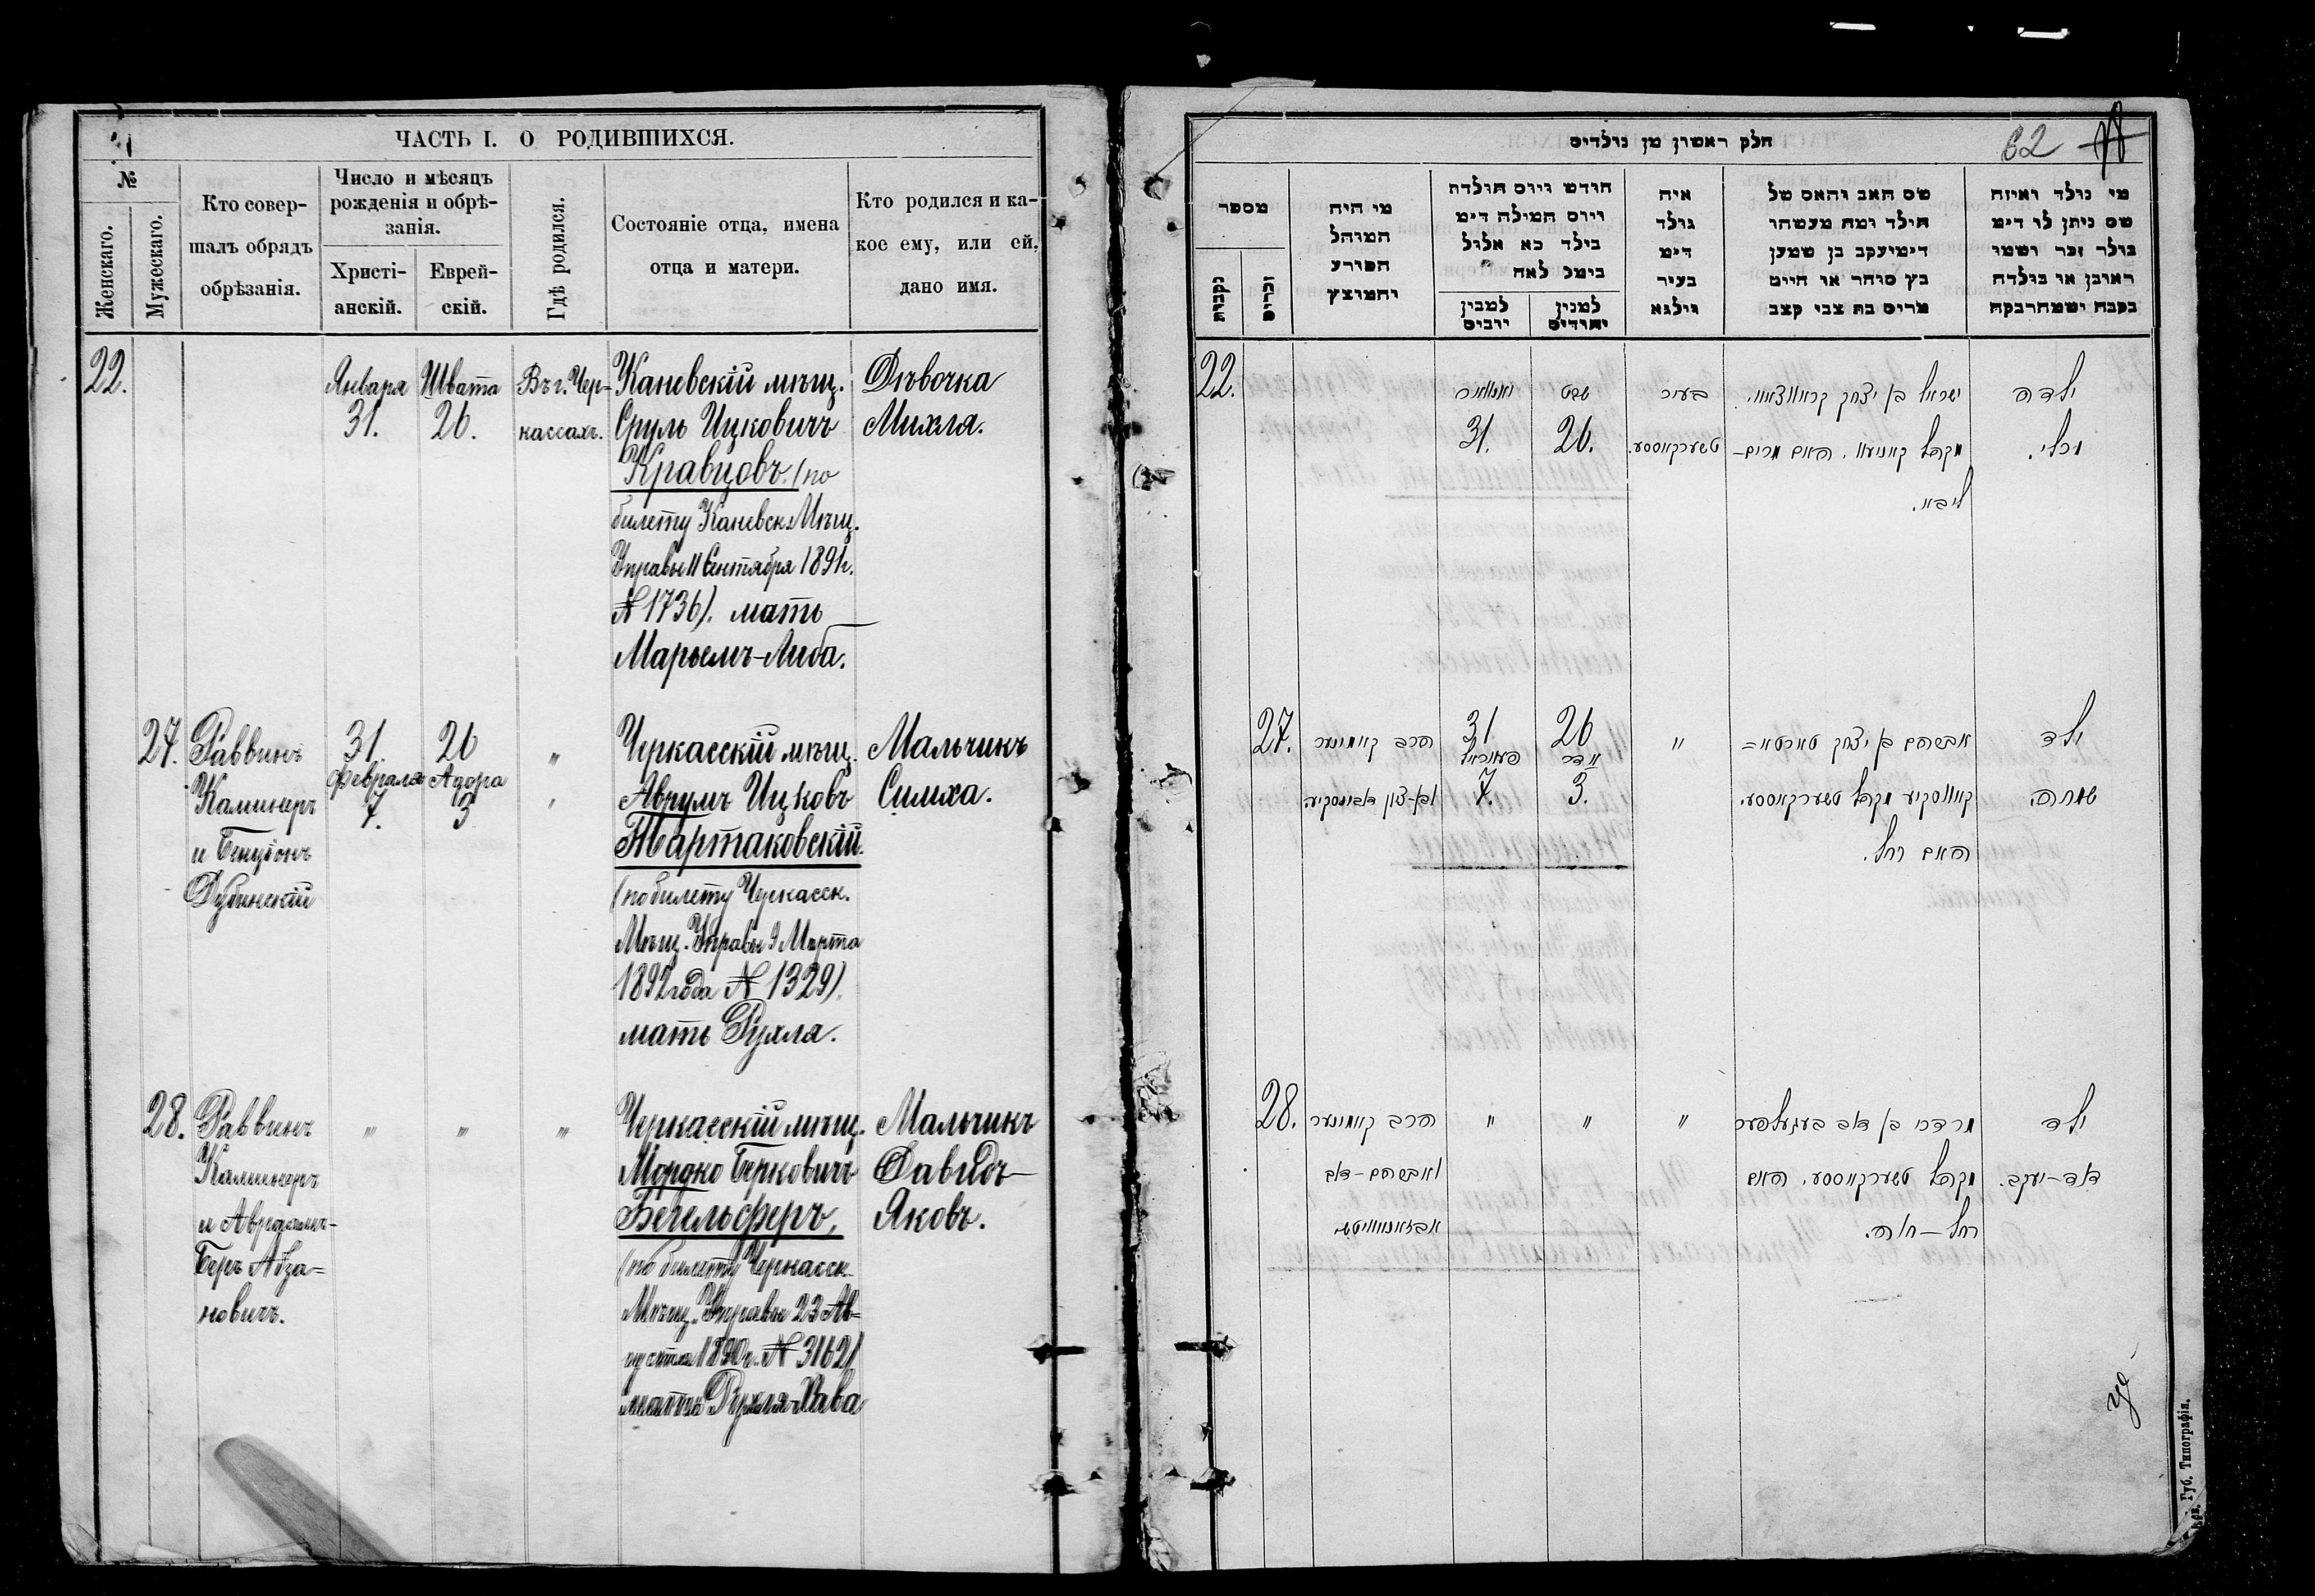 ЧАСТЬ I. О РОДИВШИХСЯ.
№
Женскаго.
Мужескаго.
Кто совер-
шалъ обрядъ
обрѣзанія.
Число и мѣсяцъ
рожденія и обрѣ-
занія.
Христі-
анскій.
Еврей-
скій.
Гдѣ родился.
Состояніе отца, имена
отца и матери.
Кто родился и ка-
кое ему, или ей,
дано имя.
22.
Января
31.
Швата
26.
Въ г. Чер-
кассахъ.
Каневскій мѣщ.
Сруль Ицковичъ
Кравцовъ. (по
билету Каневск. Мѣщ.
Управы 11 Сентября 1891 г.
№ 1736). мать
Марьемъ-Либа.
Дѣвочка
Михля.
27.
Раввинъ
Каминеръ
и Бенціонъ
Дубинскій
31.
Февраля
7.
26
Адора
3
"
"
Черкасскій мѣщ.
Аврумъ Ицковъ
Тартаковскій.
(по билету Черкасск.
Мѣщ. Управы 9 Марта
1892 года № 1329).
мать Рухля.
Мальчикъ
Симха.
28.
Раввинъ
Каминеръ
и Авраамъ-
Беръ Абза=
новичъ.
"
"
"
Черкасскій мѣщ.
Мордко Берковичъ
Бегельферъ,
(по билету Черкасск.
Мѣщ. Управы 23 Ав=
густа 1890 г. № 3162)
мать Рухля-Хава
Мальчикъ
Давидъ-
Яковъ.
חלק ראשון מן נולדים
62
מספר
נקבות
זכרים
מי היה
המוהל
הפורע
והמוצץ
חודש ויום הולדת
ויום המילה דימ
בילד כא אלול
בימל לאח
למבין
יובים
למנין
יהודים
איה
נולד
דימ
בעיר
ווילגא
שם האב והאם של
הילד ומה מעשהו
דימיעקב בן שמען
כץ סוחר או חיים
מרים בת צבי קצב
מי נולד ואיזה
שם ניתן לו דימ
בולר זכר ושמו
ראובן או בולדה
בקבה ושמהרבקה
22.
יאנוואר
31.
שבט
26.
בעיר
טשערקאססע.
ישראל בן יצחק קראווצאוו.
מקהל קאניעוו. האם מרים-
ליבא.
ילדה
מכלי.
27.
הרב קאמינער
ובן-ציון דאבינסקיע
31
פעווראל
7.
26
אדר
3.
"
אברהם בן יצחק טארטא=
קאווסקיע מקהל טשערקאססע.
האם רחל.
ילד
שמחה.
28.
הרב קאמינער
ואברהם-דוב
אבזאנאוויטש
"
"
"
מרדכי בן דוב בעגעלפער
מקהל טשערקאססע. האם
רחל-חוה.
ילד
דוד-יעקב.
Губ. Типографія.